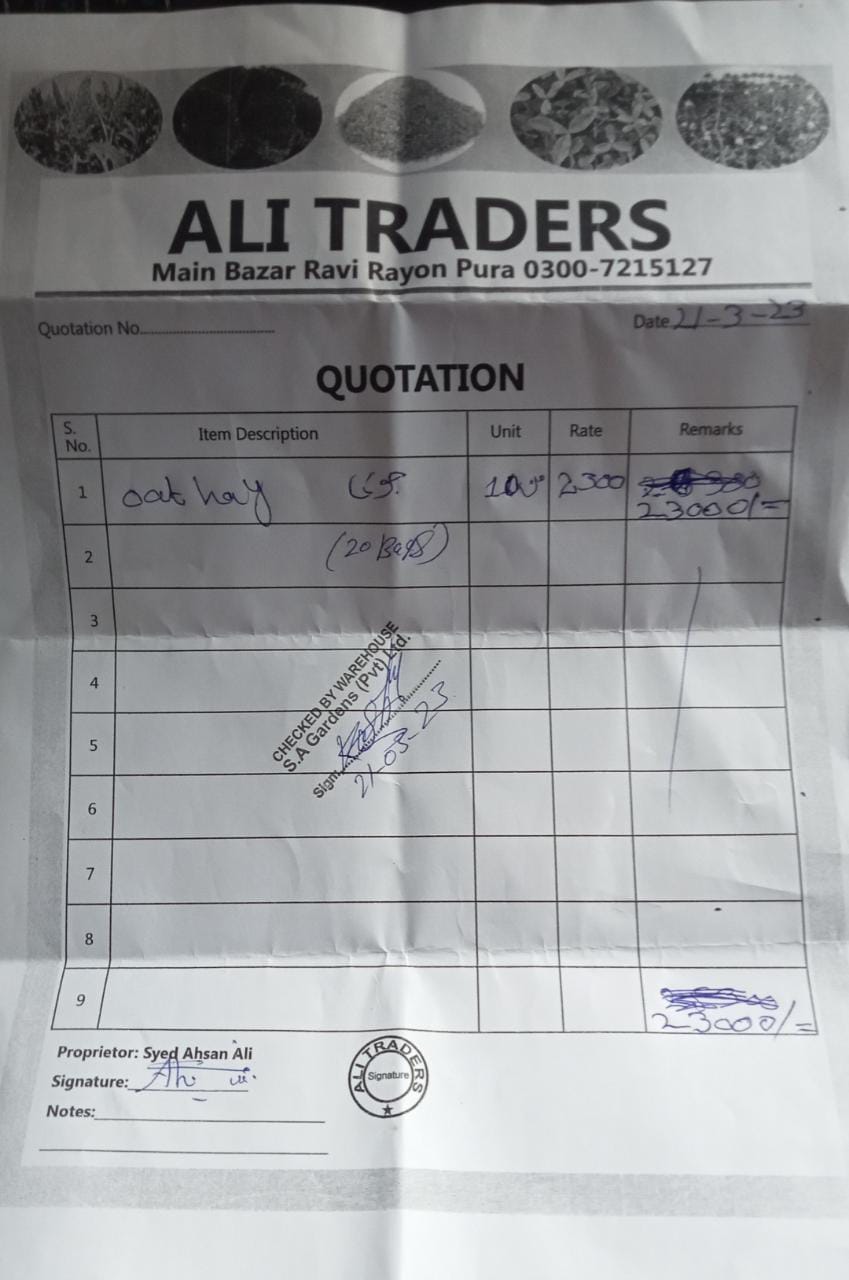 ALI TRADERS
Main Bazar Ravi Rayon Pura 0300-7215127
Quotation No.
Date 21-3-23
QUOTATION
S. No. Item Description Unit Rate Remarks
1 oat hay 2300
23000/=
2 (20 Bags)
3
CHECKED BY WAREHOUSE
S.A Gardens (Pvt) Ltd.
Sign
21-03-23
4
5
6
7
8
9 23000/=
Proprietor: Syed Ahsan Ali
Signature:
Notes:
ALI TRADERS
Signature